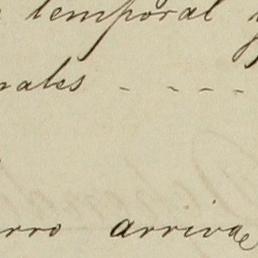 temporal
nales - - - -
rro arrivae